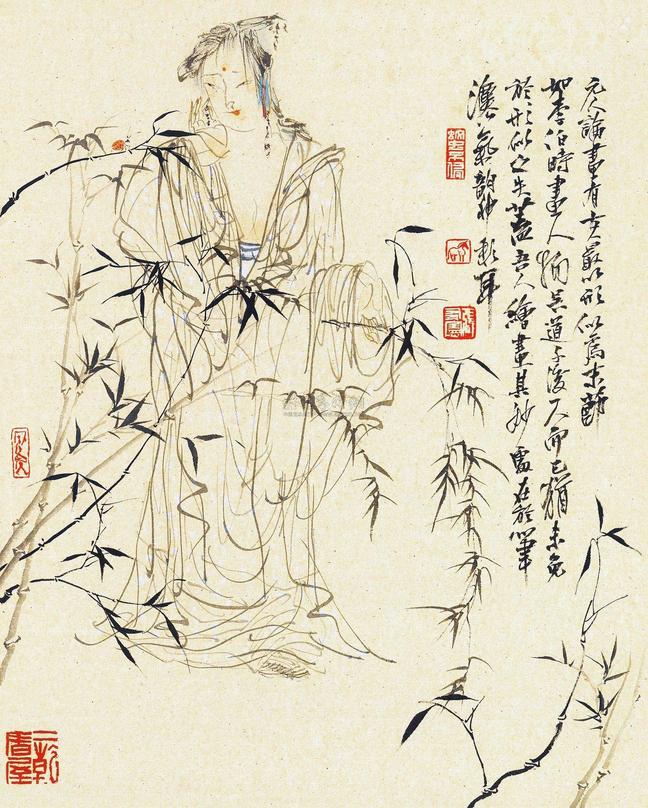 元人論畫有云最以形似爲末節
如李伯時畫人物吳道子後一人而已猶未免
於形似之失蓋吾人繪畫其妙處在於筆
灋氣韻神彩耳